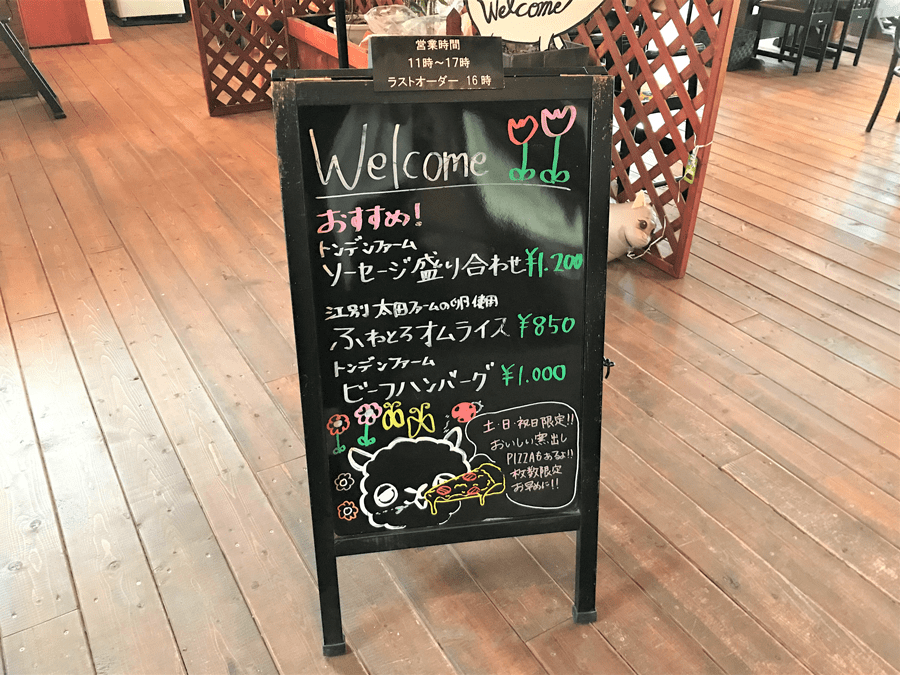 Welcome
営業時間
11時〜17時
ラストオーダー 16時
Welcome
おすすめ!
トンデンファーム
ソーセージ盛り合わせ¥1.200
江別 太田ファームの卵使用
ふわとろオムライス ¥850
トンデンファーム
ビーフハンバーグ ¥1.000
土・日・祝日限定!!
おいしい窯出し
PIZZAもあるよ!!
枚数限定
お早めに!!